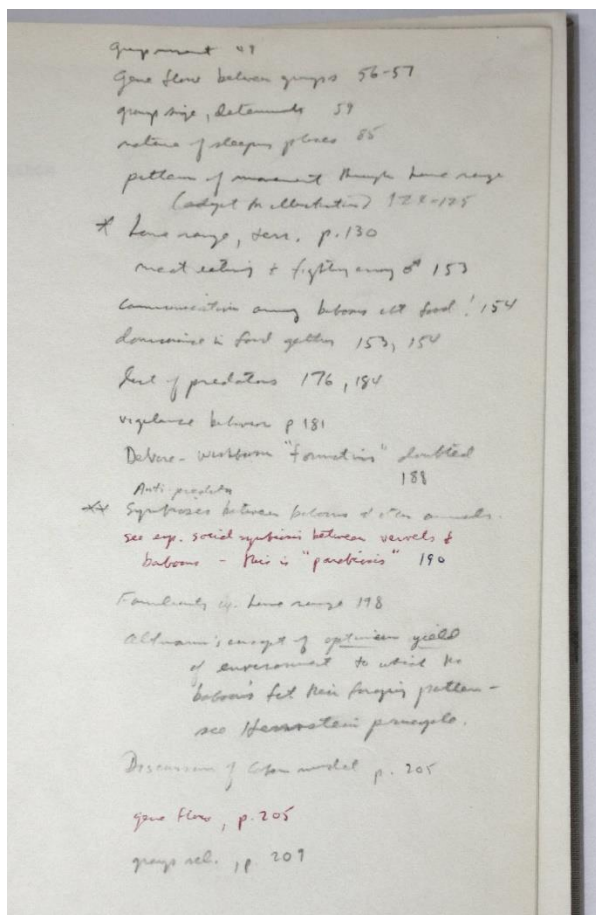 group movement 49
Gene flow between groups 56-57
group size, determinants 59
nature of sleeping places 85
pattern of movement through home range
(adapt for illustration)
* home range, terr. p. 130
meat eating + fighting among ♂ 153
communication among baboons abt food! 154
dominance in food gather 153, 154
list of predators 176, 184
vigilance behavior p 181
Devore - Washburn "formations" doubted
188
Anti-predator
** Symbioses between baboons & other animals.
see esp. social symbiosis between vervets &
baboons - this is "parabiosis" 190
Familiarity home range 198
Altmann's concept of optimum yield
of environment to which the
baboons fit their foraging pattern -
see Herrnstein principle.
Discussion of Cohen model p. 205
gene flow, p. 205
group rel., p. 209